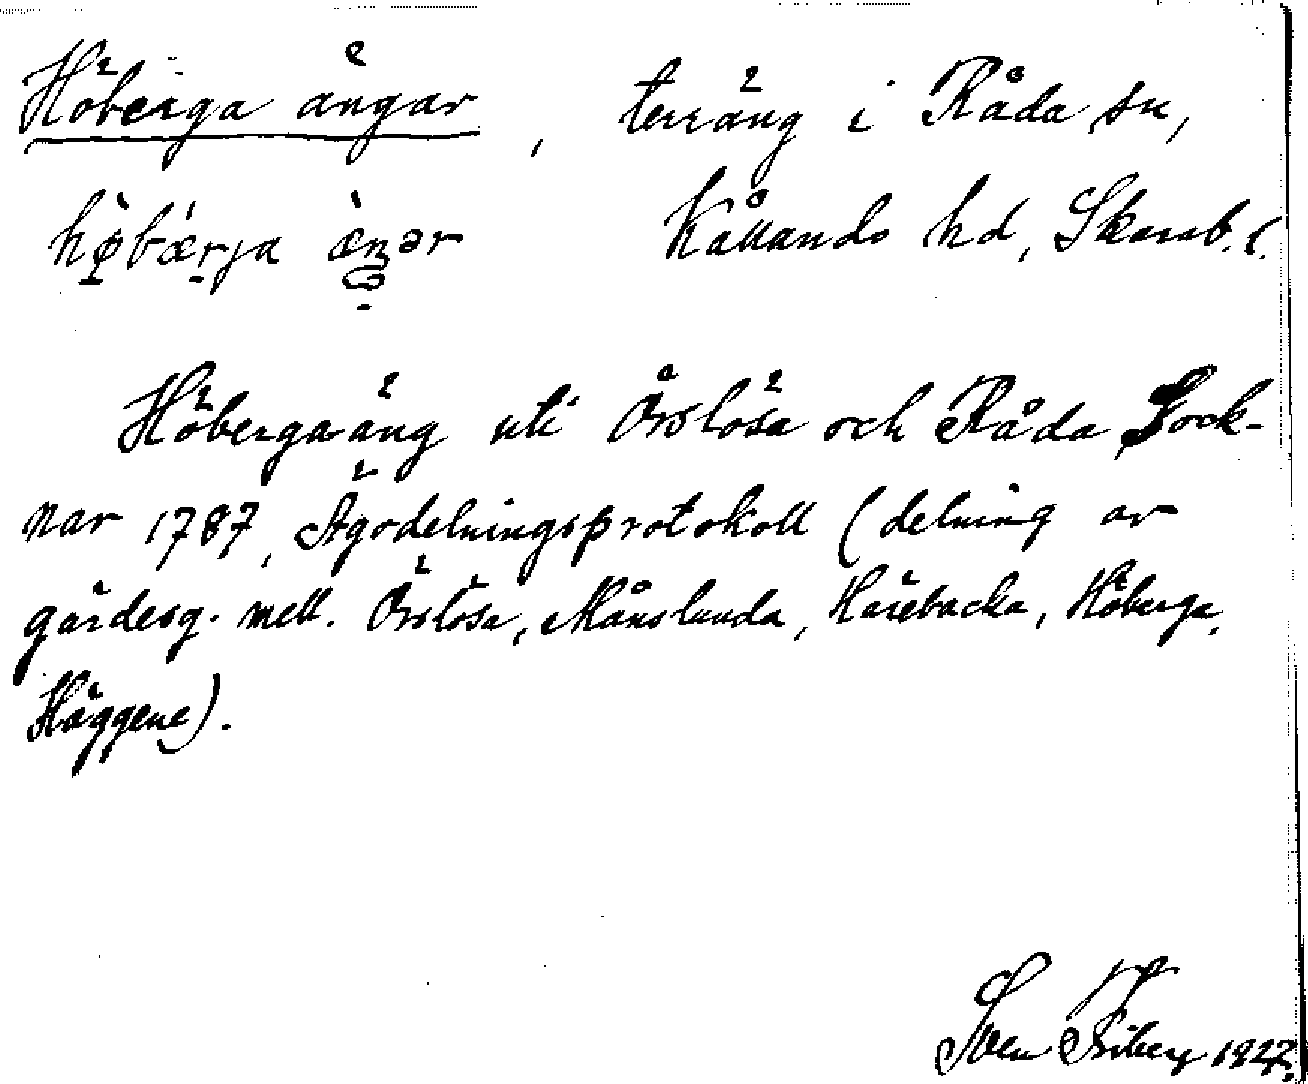 Höberga ängar, terräng i Råda sn,
høbærja æŋər Kållands hd, Skarab. l.
Höberga äng uti Örslösa och Råda Sock-
nar 1787, Ägodelningsprotokoll (delning av
gärdesg. mell. Örslösa, Månslunda, Harebacka, Höberga,
Häggene).
Sven 1927.